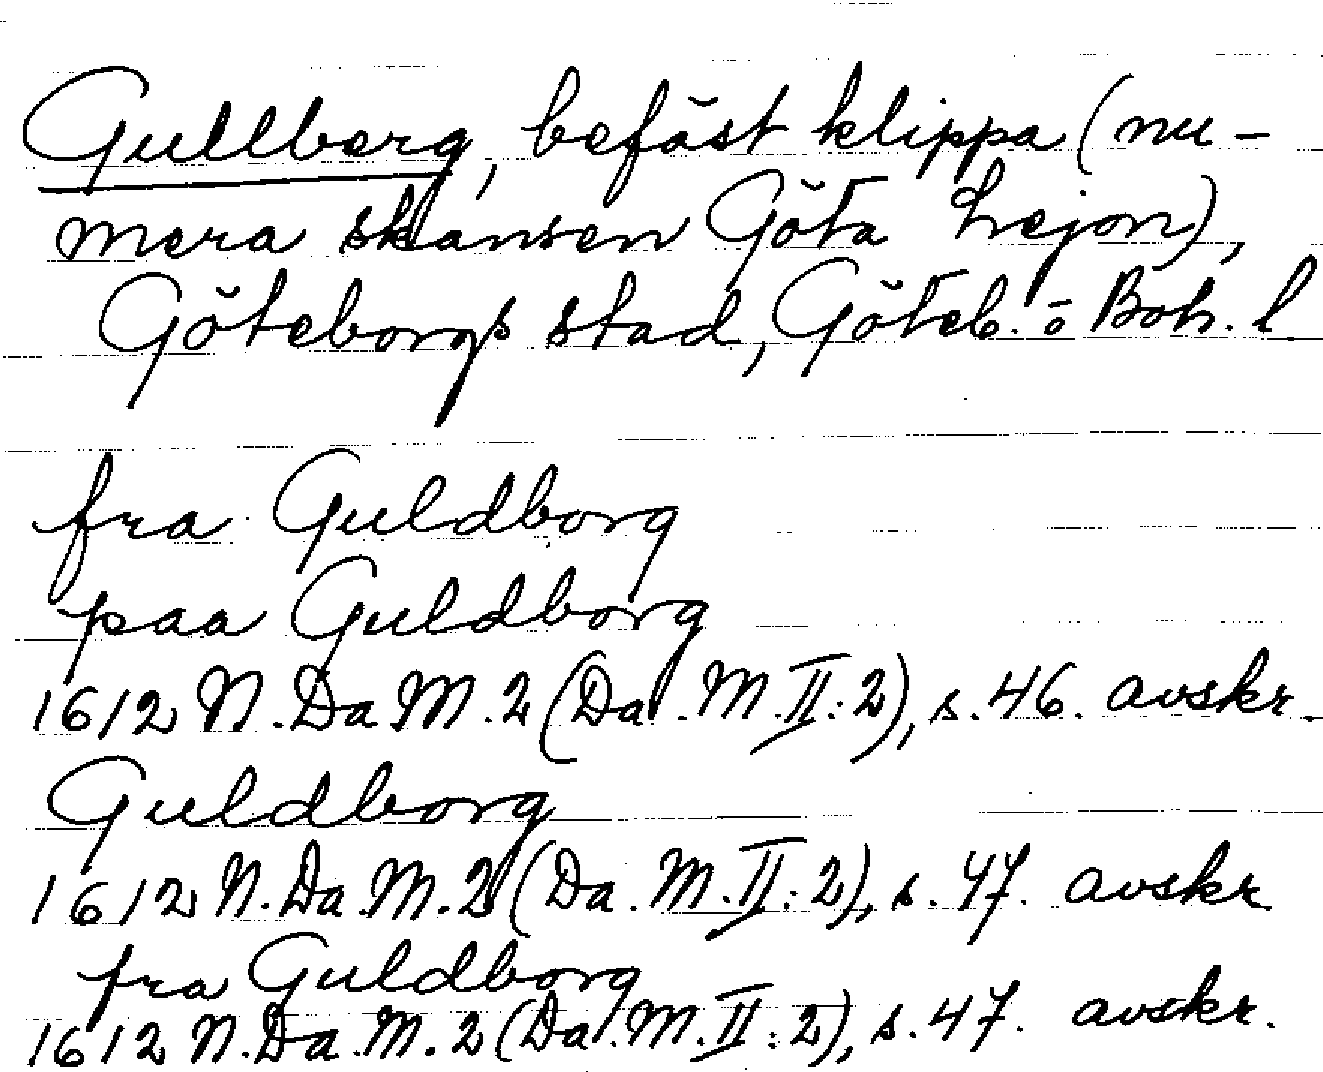 Gullberg, befäst klippa (nu-
mera skansen Göta Lejon),
Göteborgs stad, Göteb. o Boh. l
fra Guldborg
paa Guldborg
1612 N. Da M. 2 (Da. M. II: 2), s. 46. avskr.
Guldborg
1612 N. Da. M. 2 (Da. M. II: 2), s. 47. avskr.
fra Guldborg
1612 N. Da. M. 2 (Da. M. II: 2), s. 47. avskr.